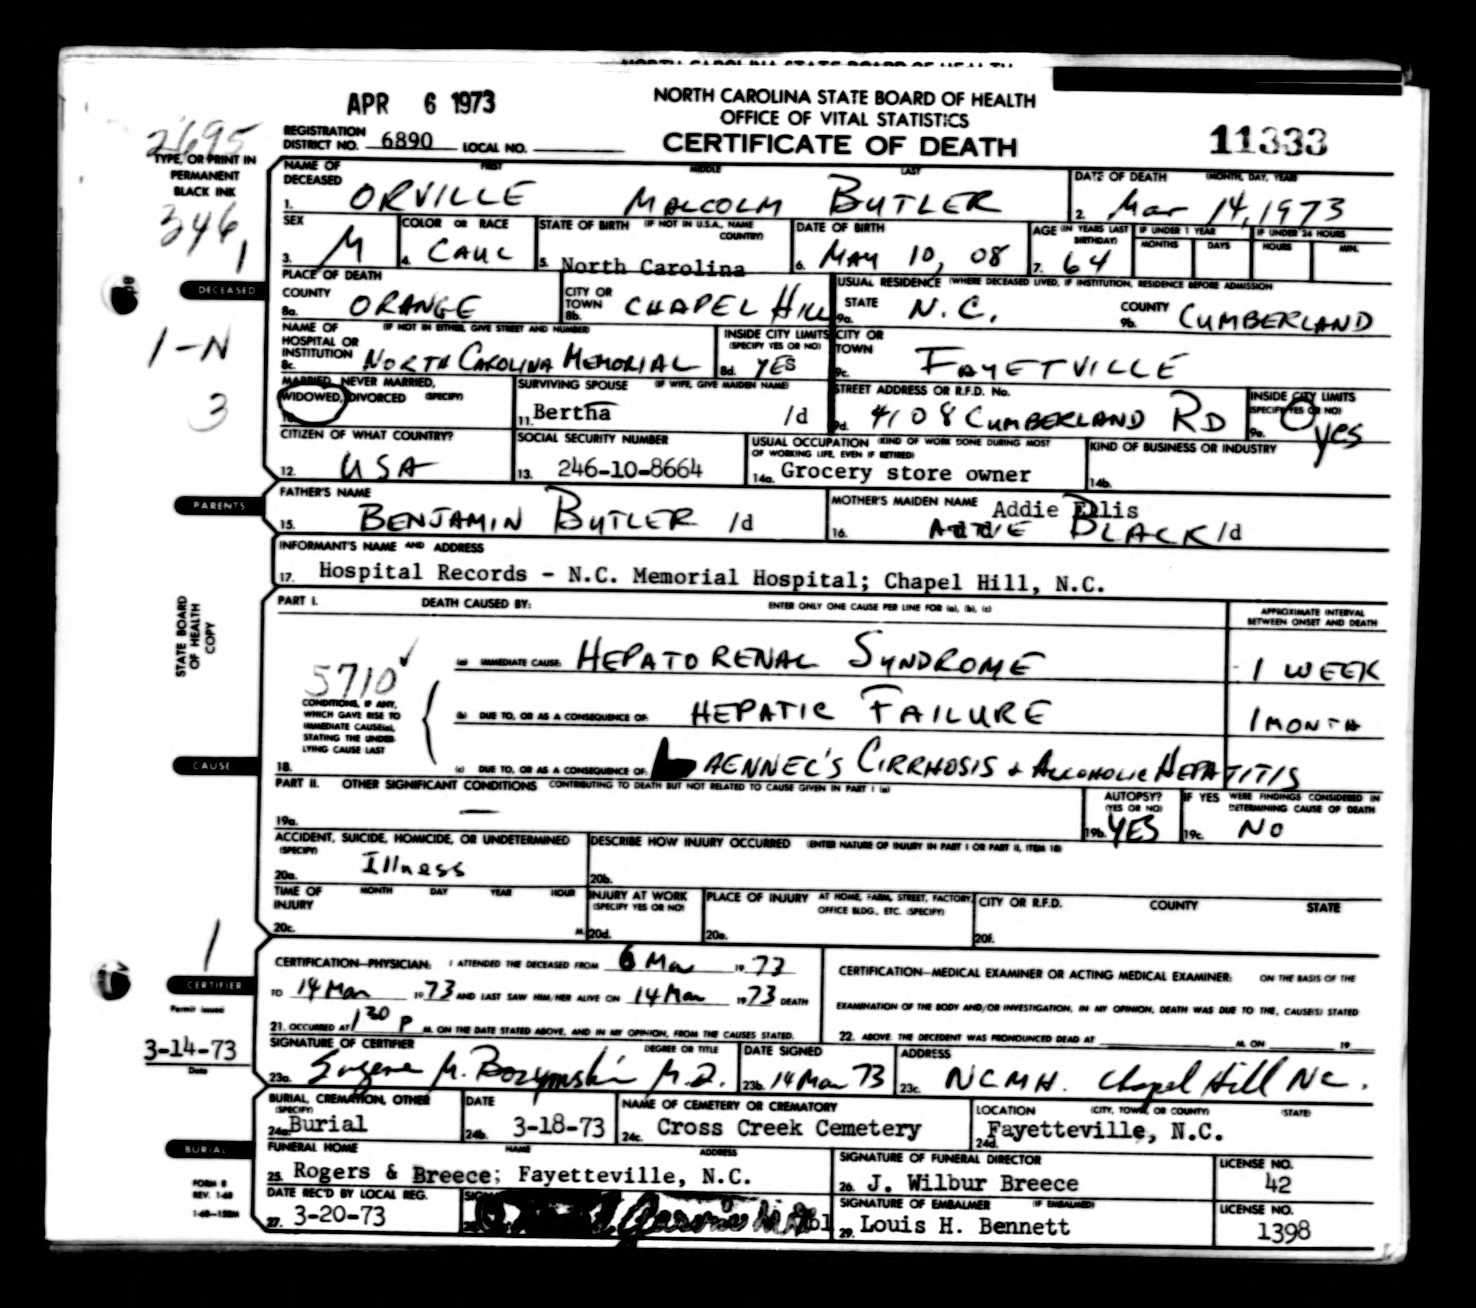 NORTH CAROLINA STATE BOARD OF HEALTH
APR 6 1973
NORTH CAROLINA STATE BOARD OF HEALTH
OFFICE OF VITAL STATISTICS
CERTIFICATE OF DEATH
11333
REGISTRATION DISTRICT NO. 6890 LOCAL NO.
2695
TYPE, OR PRINT IN
PERMANENT
BLACK INK
346,1
1-N
3
NAME OF DECEASED FIRST MIDDLE LAST
1. ORVILLE MALCOLM BUTLER
DATE OF DEATH (MONTH, DAY, YEAR)
2. Mar 14, 1973
SEX
3. M
COLOR OR RACE
4. CAUC
STATE OF BIRTH (IF NOT IN U.S.A., NAME COUNTRY)
5. North Carolina
DATE OF BIRTH
6. MAY 10, 08
AGE (IN YEARS LAST BIRTHDAY)
7. 64
IF UNDER 1 YEAR
MONTHS DAYS
IF UNDER 24 HOURS
HOURS MIN.
DECEASED
PLACE OF DEATH
COUNTY
8a. ORANGE
CITY OR TOWN
8b. CHAPEL HILL
USUAL RESIDENCE (WHERE DECEASED LIVED, IF INSTITUTION, RESIDENCE BEFORE ADMISSION
STATE
9a. N.C.
COUNTY
9b. CUMBERLAND
NAME OF HOSPITAL OR INSTITUTION (IF NOT IN EITHER, GIVE STREET AND NUMBER)
8c. NORTH CAROLINA MEMORIAL
INSIDE CITY LIMITS (SPECIFY YES OR NO)
8d. YES
CITY OR TOWN
9c. FAYETVILLE
MARRIED, NEVER MARRIED,
WIDOWED, DIVORCED (SPECIFY)
10.
SURVIVING SPOUSE (IF WIFE, GIVE MAIDEN NAME)
11. Bertha /d
STREET ADDRESS OR R.F.D. No.
9d. 4108 CUMBERLAND RD
INSIDE CITY LIMITS
(SPECIFY YES OR NO)
9e. yes
CITIZEN OF WHAT COUNTRY?
12. USA
SOCIAL SECURITY NUMBER
13. 246-10-8664
USUAL OCCUPATION (KIND OF WORK DONE DURING MOST OF WORKING LIFE, EVEN IF RETIRED)
14a. Grocery store owner
KIND OF BUSINESS OR INDUSTRY
14b.
PARENTS
FATHER'S NAME
15. BENJAMIN BUTLER /d
MOTHER'S MAIDEN NAME Addie Ellis
16. ADDIE BLACK /d
INFORMANT'S NAME AND ADDRESS
17. Hospital Records - N.C. Memorial Hospital; Chapel Hill, N.C.
STATE BOARD
OF HEALTH
COPY
CAUSE
PART I. DEATH CAUSED BY: ENTER ONLY ONE CAUSE PER LINE FOR (a), (b), (c)
APPROXIMATE INTERVAL
BETWEEN ONSET AND DEATH
5710
(a) IMMEDIATE CAUSE: HEPATORENAL SYNDROME 1 WEEK
CONDITIONS, IF ANY,
WHICH GAVE RISE TO
IMMEDIATE CAUSE(a),
STATING THE UNDER-
LYING CAUSE LAST
(b) DUE TO, OR AS A CONSEQUENCE OF: HEPATIC FAILURE 1 MONTH
18.
(c) DUE TO, OR AS A CONSEQUENCE OF: LAENNEC'S CIRRHOSIS + ALCOHOLIC HEPATITIS
PART II. OTHER SIGNIFICANT CONDITIONS CONTRIBUTING TO DEATH BUT NOT RELATED TO CAUSE GIVEN IN PART I (a)
19a. —
AUTOPSY?
(YES OR NO)
19b. YES
IF YES WERE FINDINGS CONSIDERED IN DETERMINING CAUSE OF DEATH
19c. NO
ACCIDENT, SUICIDE, HOMICIDE, OR UNDETERMINED
(SPECIFY)
20a. Illness
DESCRIBE HOW INJURY OCCURRED (ENTER NATURE OF INJURY IN PART I OR PART II, ITEM 18)
20b.
TIME OF INJURY MONTH DAY YEAR HOUR
20c. M.
INJURY AT WORK
(SPECIFY YES OR NO)
20d.
PLACE OF INJURY AT HOME, FARM, STREET, FACTORY, OFFICE BLDG., ETC. (SPECIFY)
20e.
CITY OR R.F.D. COUNTY STATE
20f.
1
CERTIFIER
CERTIFICATION—PHYSICIAN: I ATTENDED THE DECEASED FROM 6 Mar 1973
TO 14 Mar 1973 AND LAST SAW HIM/HER ALIVE ON 14 Mar 1973 DEATH
21. OCCURRED AT 1 30 P M. ON THE DATE STATED ABOVE, AND IN MY OPINION, FROM THE CAUSES STATED.
CERTIFICATION—MEDICAL EXAMINER OR ACTING MEDICAL EXAMINER: ON THE BASIS OF THE
EXAMINATION OF THE BODY AND/OR INVESTIGATION, IN MY OPINION, DEATH WAS DUE TO THE, CAUSE(S) STATED
22. ABOVE. THE DECEDENT WAS PRONOUNCED DEAD AT M. ON 19
Permit issued
3-14-73
Date
SIGNATURE OF CERTIFIER DEGREE OR TITLE
23a. Eugene M. Bozymski M.D.
DATE SIGNED
23b. 14 Mar 73
ADDRESS
23c. NCMH. Chapel Hill NC.
BURIAL
BURIAL, CREMATION, OTHER
(SPECIFY)
24a. Burial
DATE
24b. 3-18-73
NAME OF CEMETERY OR CREMATORY
24c. Cross Creek Cemetery
LOCATION (CITY, TOWN, OR COUNTY) (STATE)
24d. Fayetteville, N.C.
FUNERAL HOME NAME ADDRESS
25. Rogers & Breece; Fayetteville, N.C.
SIGNATURE OF FUNERAL DIRECTOR
26. J. Wilbur Breece
LICENSE NO.
42
FORM 8
REV. 1-68
DATE REC'D BY LOCAL REG.
27. 3-20-73
SIGNATURE OF EMBALMER (IF EMBALMED)
29. Louis H. Bennett
LICENSE NO.
1398